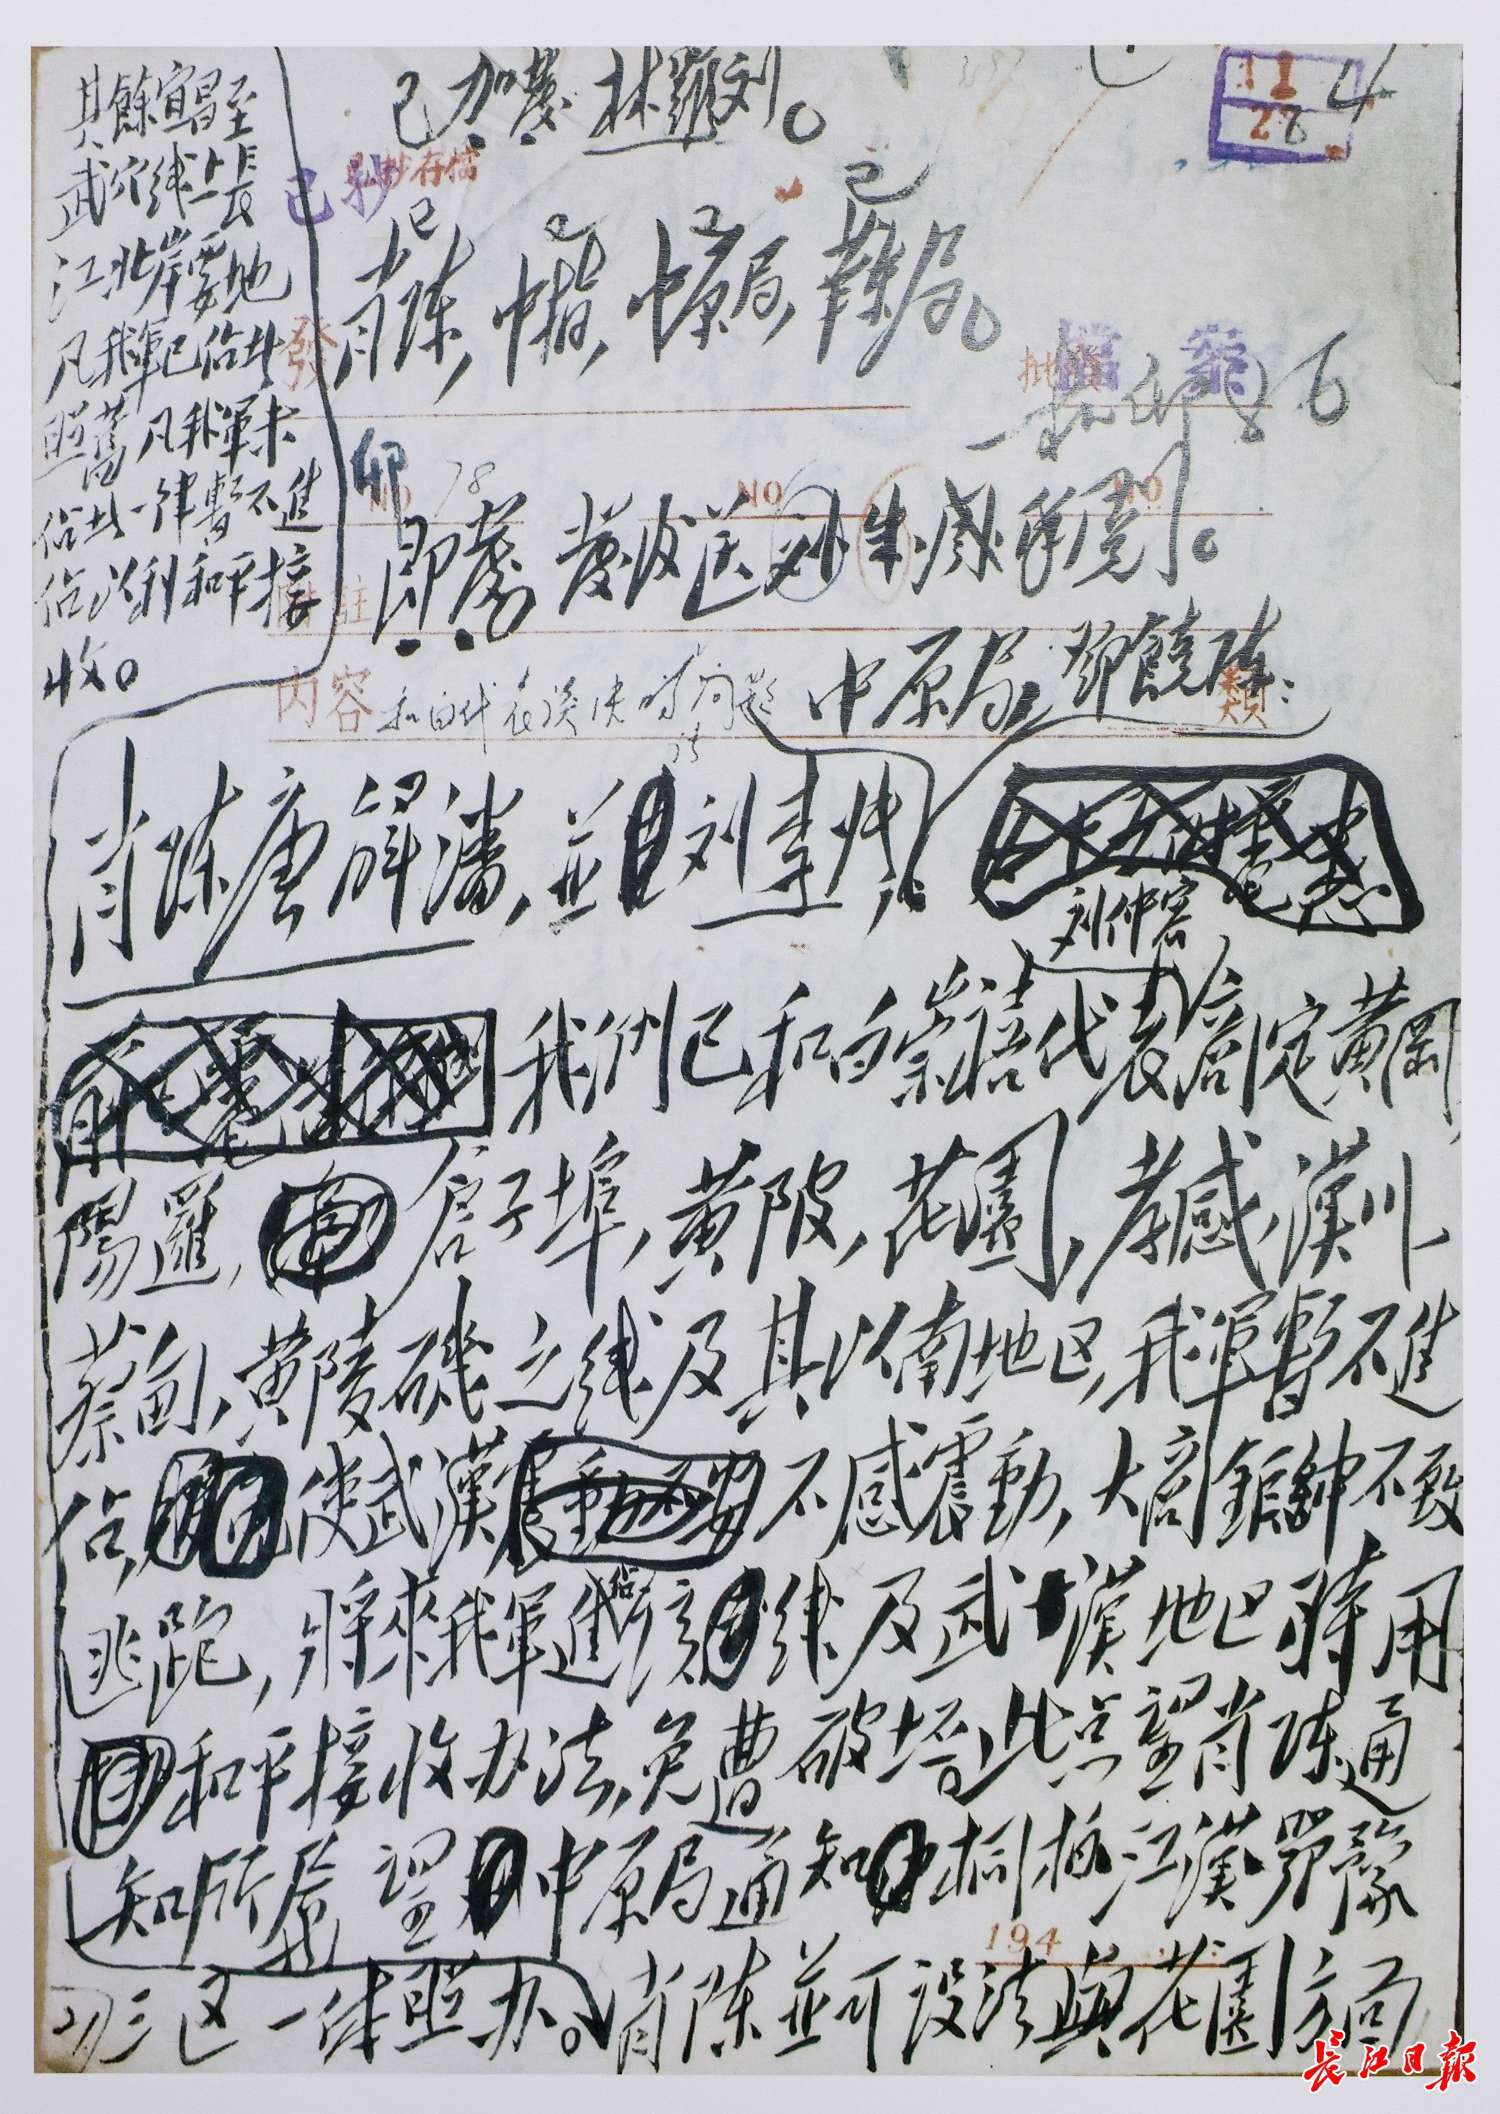 已加發林羅刘。
已抄存檔
11
28
4
已 已 已 已
肖陈，中指，中原局，華東局。
發
批
檔案
卯
78
NO NO NO
即發 發後送刘朱
内容
和白代表談決的问题
類
中原局，鄧饒陈：
肖陈唐解潘，並
刘仲容
我们已和白崇禧代表商定黄冈，
陽邏，倉子埠，黄陂，花園，孝感，漢川，
蔡甸，黄陵磯之线及其以南地区，我軍暫不進
佔，使武漢不感震動，大商鉅紳不致
逃跑，將來我軍進佔該线及武漢地区時用
和平接收办法，免遭破坏。此点望肖陈通
知所屬，望中原局通知桐柏江漢鄂豫
三区一体照办。肖陈並可设法與花園方面
其餘宜昌至
武穴线上長
江北岸要地
凡我軍已佔者
照舊凡我軍未
佔者一律暫不進
佔以利和平接
收。
194
长江日报